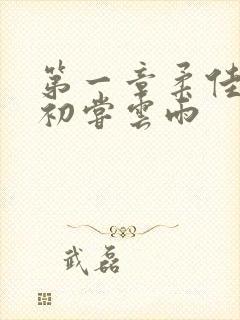 第一章柔佳
初尝雲雨
武磊